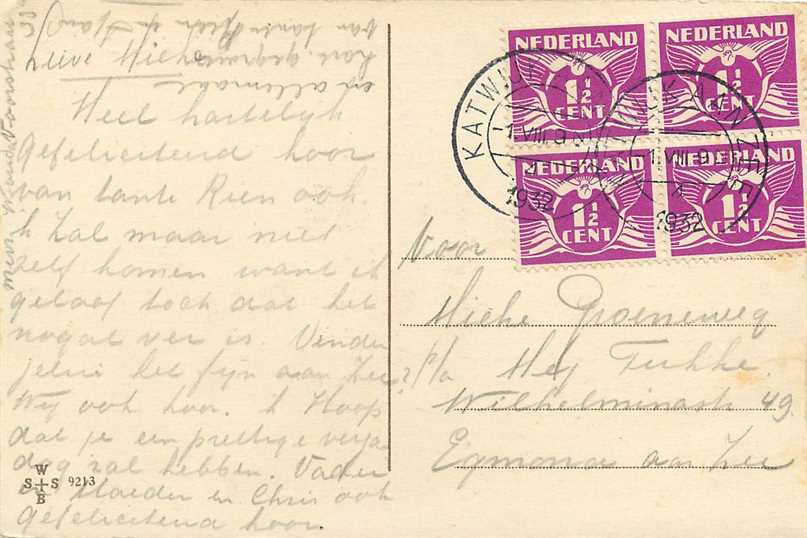 Lieve Mieke
Heel hartelijk
gefeliciteerd hoor
van tante Rien ook.
Ik zal maar niet
zelf komen want ik
geloof toch dat het
nogal ver is. Vinden
jelui het fijn aan Zee?
Wij ook hoor. Ik Hoop
dat je een prettige verja
dag zal hebben. Vader
en Moeder en Chris ook
gefeliciteerd hoor.
en allemaal
hart. gegroet
van tante Rien en
W
S S
B
9213
NEDERLAND
1½
CENT
NEDERLAND
1½
CENT
NEDERLAND
1½
CENT
NEDERLAND
1½
CENT
KATWIJK AAN ZEE
1 VIII 9
1932
KATWIJK AAN ZEE
1 VIII 9
1932
Voor
Mieke Groeneweg
p/a Mej Tukke
Wilhelminastr 49
Egmond aan Zee